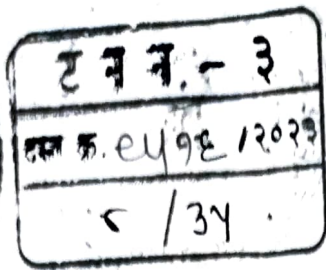 ट न न. - ३
दस्त क्र. ९५१६ /२०२३
/ ३५